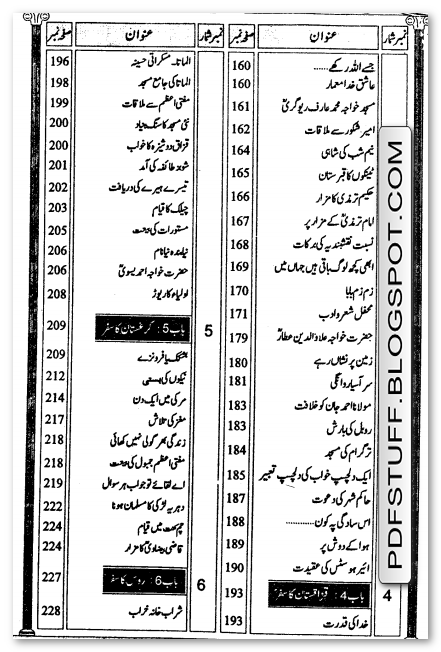 نمبر شمار عنوان صفحہ نمبر
جسے اللہ رکھے...... 160
عاشق خدا معمار 160
مسجد خواجہ محمد عارف ریوگریؒ 161
امیر شکور سے ملاقات 162
نیم شب کی شاہی 164
ٹینکوں کا قبرستان 165
حکیم ترمذیؒ کا مزار 166
امام ترمذیؒ کے مزار پر 167
نسبت نقشبندیہ کی برکات 168
ابھی کچھ لوگ باقی ہیں جہاں میں 169
زم زم بابا 170
محفل شعر و ادب 171
حضرت خواجہ علاؤالدین عطارؒ 179
زمین پر نشاں رہے 180
سر آسیا روانگی 181
مولانا احمد جان کو خلافت 183
روبل کی بارش 183
تزگرام کی مسجد 184
ایک دلچسپ خواب کی دلچسپ تعبیر 185
حاکم شہر کی دعوت 187
اس سادگی پہ کون........... 188
ہوا کے دوش پر 189
ائیر ہوسٹس کی عقیدت 190
4 باب 4 : قزاقستان کا سفر 193
خدا کی قدرت 193
عنوان صفحہ نمبر نمبر شمار
الماتا۔ مسکراتی حسینہ 196
الماتا کی جامع مسجد 198
مفتی اعظم سے ملاقات 199
نئی مسجد کا سنگ بنیاد 200
قزاق دوشیزہ کا خواب 200
شوبز طائفہ کی آمد 201
تیسرے ہیرے کی دریافت 202
چیلک کا قیام 203
مستورات کی بیعت 205
نیلمدہ نیا نام 206
حضرت خواجہ احمد یسویؒ 206
اولیاء کا ریوڑ 208
5 باب 5 : کرغستان کا سفر 209
بشکک یا فرونزے 209
نیکوں کی بستی 212
مرکی میں ایک دن 214
مغز کی تلاش 217
زندگی بھر گولی نہیں کھائی 218
مفتی اعظم جمبول کی بیعت 218
اے لقائے تو جواب ہر سوال 219
دہریہ لڑکی کا مسلمان ہونا 222
چم بھت میں قیام 224
قاضی بیضاویؒ کا مزار 224
6 باب 6 : روس کا سفر 227
شراب خانہ خراب 228
PDFSTUFF.BLOGSPOT.COM